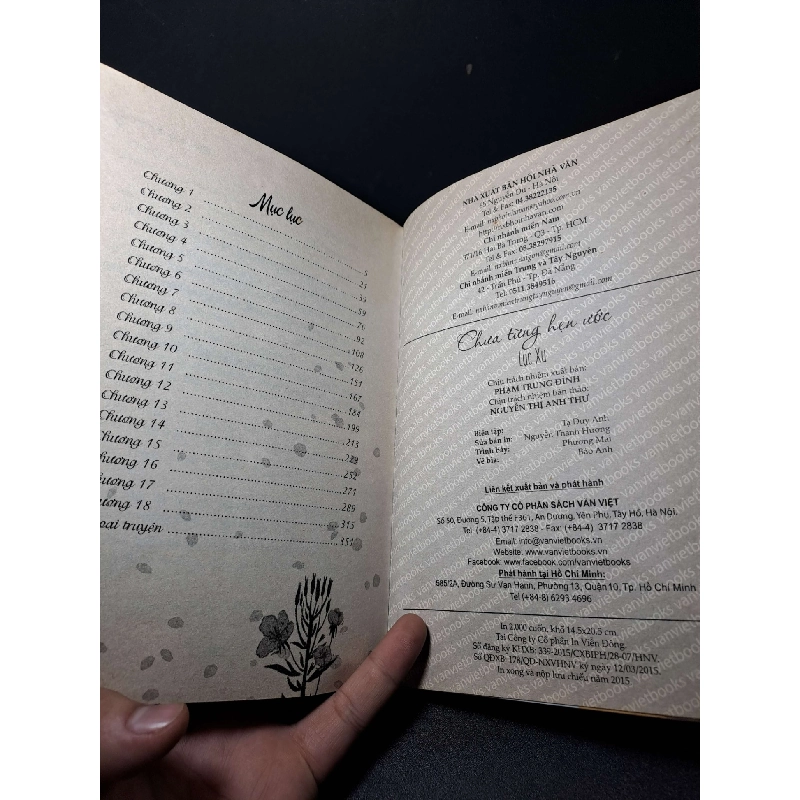 Mục lục
Chương 1
Chương 2
Chương 3
Chương 4
Chương 5
Chương 6
Chương 7
Chương 8
Chương 9
Chương 10
Chương 11
Chương 12
Chương 13
Chương 14
Chương 15
Chương 16
Chương 17
Chương 18
oại truyện
5
21
59
76
92
108
126
151
167
184
199
213
229
252
271
289
315
351
NHÀ XUẤT BẢN HỘI NHÀ VĂN
65 Nguyễn Du - Hà Nội
Tel & Fax: 04.38222135
E-mail:
Chi nhánh miền Nam
371/16 Hai Bà Trưng - Q3 - Tp. HCM
Tel & Fax: 08.38297915
E-mail:
Chi nhánh miền Trung và Tây Nguyên
42 - Trần Phú - Tp. Đà Nẵng
Tel: 0511.3849516
E-mail:
Chưa từng hẹn ước
Lục Xu
Chịu trách nhiệm xuất bản:
PHẠM TRUNG ĐỈNH
Chịu trách nhiệm bản thảo:
NGUYỄN THỊ ANH THƯ
Biên tập: Tạ Duy Anh
Sửa bản in: Nguyễn Thanh Hương
Trình bày: Phương Mai
Vẽ bìa: Bảo Anh
Liên kết xuất bản và phát hành
CÔNG TY CỔ PHẦN SÁCH VĂN VIỆT
Số 50, Đường 5, Tập thể F361, An Dương, Yên Phụ, Tây Hồ, Hà Nội.
Tel: (+84-4) 3717 2838 - Fax: (+84-4) 3717 2838
Email: info@vanvietbooks.vn
Website: www.vanvietbooks.vn
Facebook: www.facebook.com/vanvietbooks
Phát hành tại Hồ Chí Minh:
585/2A, Đường Sư Vạn Hạnh, Phường 13, Quận 10, Tp. Hồ Chí Minh
Tel (+84-8) 6293 4696
In 2.000 cuốn, khổ 14.5x20.5 cm.
Tại Công ty Cổ phần In Viễn Đông.
Số đăng ký KHXB: 339-2015/CXBIPH/28-07/HNV.
Số QĐXB: 178/QĐ-NXVHNV ký ngày 12/03/2015.
In xong và nộp lưu chiểu năm 2015